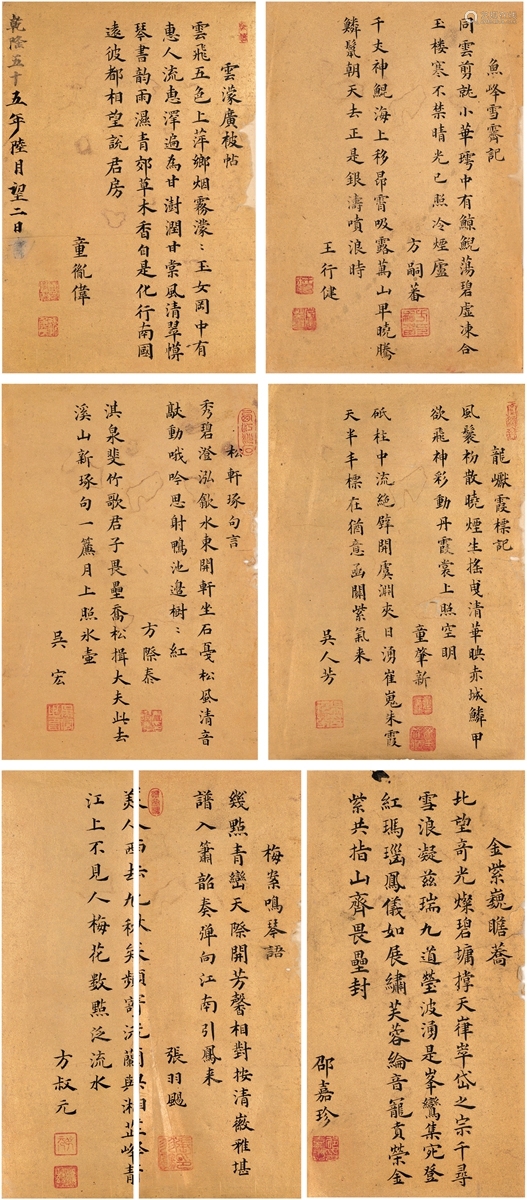 魚峰雪霽記
同雲剪就小華璚中有鯨鯢蕩碧虛凍合
玉樓寒不禁晴光已照冷煙廬
方嗣蕃
千丈神鯢海上移昂霄吸露萬山卑曉騰
鱗鬣朝天去正是銀濤噴浪時
王行健
雲濛廣被帖
雲飛五色上萍鄉烟霧濛〻玉女岡中有
惠人流惠澤遍為甘澍潤甘棠風清翠幙
琴書韵雨濕青郊草木香自是化行南國
遠彼都相望說君房
童胤偉
乾隆五十五年陸月望二日
龍巘霞標記
風鬟枌散曉煙生搖曵清華映赤城鱗甲
欲飛神彩動丹霞裳上照空明
童肇新
砥柱中流絕壁開虞淵夾日湧崔嵬朱霞
天半丰標在猶意函關紫氣来
吳人芳
松軒琢句言
秀碧澄泓飲水東開軒坐石戞松風清音
敲動哦吟思射鴨池邉樹〻紅
方際泰
淇泉斐竹歌君子畏壘喬松揖大夫此去
溪山新琢句一簾月上照氷壷
吳宏
金紫巍瞻蕎
北望奇光燦碧墉撐天嵂崒岱之宗千尋
雪浪凝兹瑞九道瑩波湧是峯鸞集宛登
紅瑪瑙鳳儀如展繡芙蓉綸音寵賁榮金
紫共指山齊畏壘封
邵嘉珍
梅案鳴琴語
幾點青巒天際開芳馨相對按清徽雅堪
譜入簫韶奏彈向江南引鳳来
張羽颺
美人西去九秋矣頻寄沅蘭與湘芷峰青
江上不見人梅花数點泛流水
方叔元